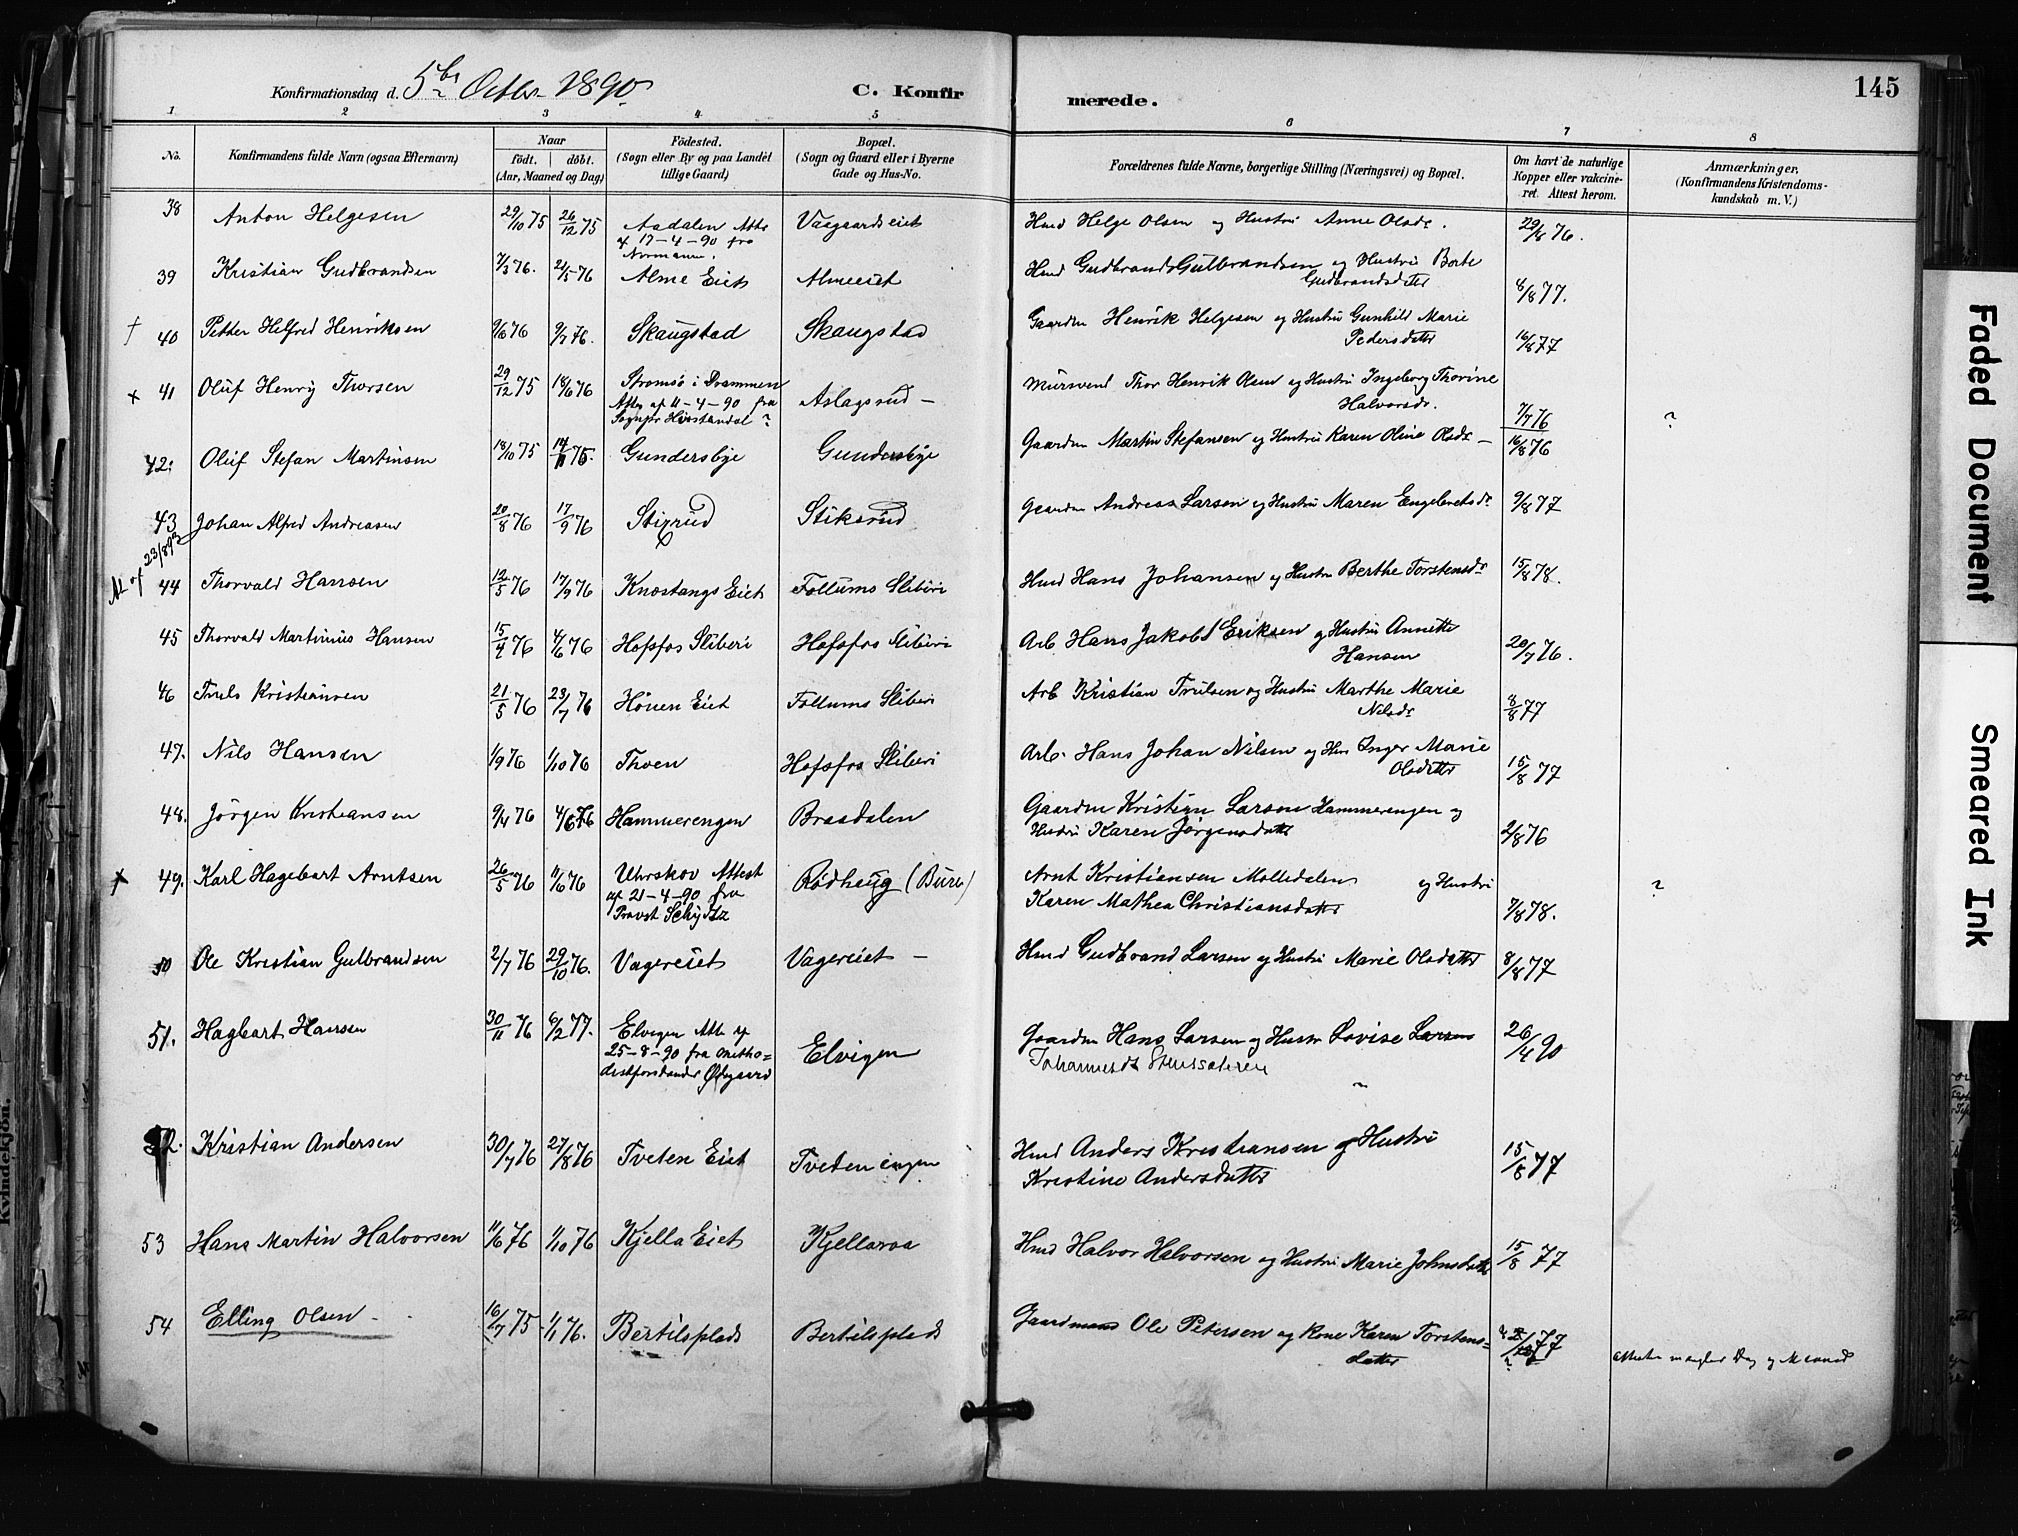 Konfirmationsdag d. 5te Octbr. 1890. C. Konfirmerede. 145
1 2 3 4 5 6 7 8
No. Konfirmandens fulde Navn (ogsaa Efternavn) Naar födt. döbt. (Aar, Maaned og Dag) Födested. (Sogn eller By og paa Landet tillige Gaard) Bopæl. (Sogn og Gaard eller i Byerne Gade og Hus-No. Forældrenes fulde Navne, borgerlige Stilling (Næringsvei) og Bopæl. Om havt de naturlige Kopper eller vakcineret. Attest herom. Anmærkninger. (Konfirmandens Kristendomskundskab m. V.)
38 Anton Helgesen 29/10 75 26/12 75 Aadalen Att. af 17-4-90 fra Normann. Vaagaardseiet Hmd Helge Olsen og Hustru Anne Olsdr. 29/8 76.
39 Kristian Gudbrandsen 7/3 76. 21/5 76 Alme Eiet Almeeiet Hmd Gudbrand Gulbrandsen og Hustru Berte Gudbrandsdatter 8/8 77.
† 40 Petter Helfred Henriksen 9/6 76 9/7 76. Skaugstad Skaugstad Gaardm Henrik Helgesen og Hustru Gunhild Marie Pedersdatter 16/8 77
x 41 Oluf Henry Thorsen 29/12 75 18/6 76 Stromsö i Drammen Att. af 11-4-90 fra Sognepr ? Aslagsrud — Mursvend Thor Henrik Olsen og Hustru Ingeborg Thorine Halvorsdr. 7/7 76 ?
42. Oluf Stefan Martinsen 18/10 75 14/11 75. Gundersbye Gundersbye Gaardm Martin Stefansen og Hustru Karen Oline Olsdr — 16/8 76
43 Johan Alfred Andreasen 20/8 76 17/9 76 Stixrud Stiksrud Gaardm Andreas Larsen og Hustru Maren Engebretsdr 9/8 77
At. af 23/8 93 44 Thorvald Hansen 12/5 76 17/9 76 Knestangs Eiet Follums Sliberi Hmd Hans Johansen og Hustru Berthe Torstensdr 15/8 78.
45 Thorvald Martinius Hansen 15/4 76 4/6 76 Hofsfos Sliberi Hofsfos Sliberi Arb Hans Jakob Eriksen og Hustru Annette Hansen 20/7 76.
46 Truls Kristiansen 21/5 76 23/7 76 Hönen Eiet Follums Sliberi Arb Kristian Trulsen og Hustru Marthe Marie Nilsdr 8/8 77
47. Nils Hansen 1/9 76 1/10 76 Thoen Hofsfos Sliberi Arb. Hans Johan Nilsen og Hus Inger Marie Olsdatter 15/8 77
48. Jörgen Kristiansen 9/4 76 4/6 76 Hammerengen Braadalen Gaardm Kristian Larsen Hammerengen og Hustru Karen Jørgensdatter 2/8 76
x 49. Karl Hagebart Arntsen 26/5 76 11/6 76 Uhrskov Attest af 21-4-90 fra Provst Schytz Rødhaug (Bure) Arnt Kristiansen Mølledalen og Hustru Karen Mathea Christiansdatter 7/8 78. ?
50 Ole Kristian Gulbrandsen 2/7 76 29/10 76. Vagereiet Vagereiet — Hmd Gudbrand Larsen og Hustru Marie Olsdatter 8/8 77
51. Hagbart Hansen 30/11 76 6/2 77. Elvigen Att. af 25-8-90 fra Methodistforstander Ødegaard Elvigen Gaardm Hans Larsen og Hustr Lovise Larsen Johannesdr 26/4 90
52. Kristian Andersen 30/7 76 27/8 76 Tveten Eiet Tveten engen Hmd Anders Kristiansen og Hustru Kristine Andersdatter 15/8 77
53 Hans Martin Halvorsen 11/6 76 1/10 76 Kjella Eiet Kjelleraa Hmd Halvor Halvorsen og Hustru Marie Johnsdatter 15/8 77
54 Elling Olsen 16/7 75 1/1 76. Bertilsplads Bertilsplads Gaardmand Ole Petersen og Kone Karen Torstensdatter 77 ? Attesten mangler Dag og Maaned
Faded Document
Smeared Ink
Kvindekjön.